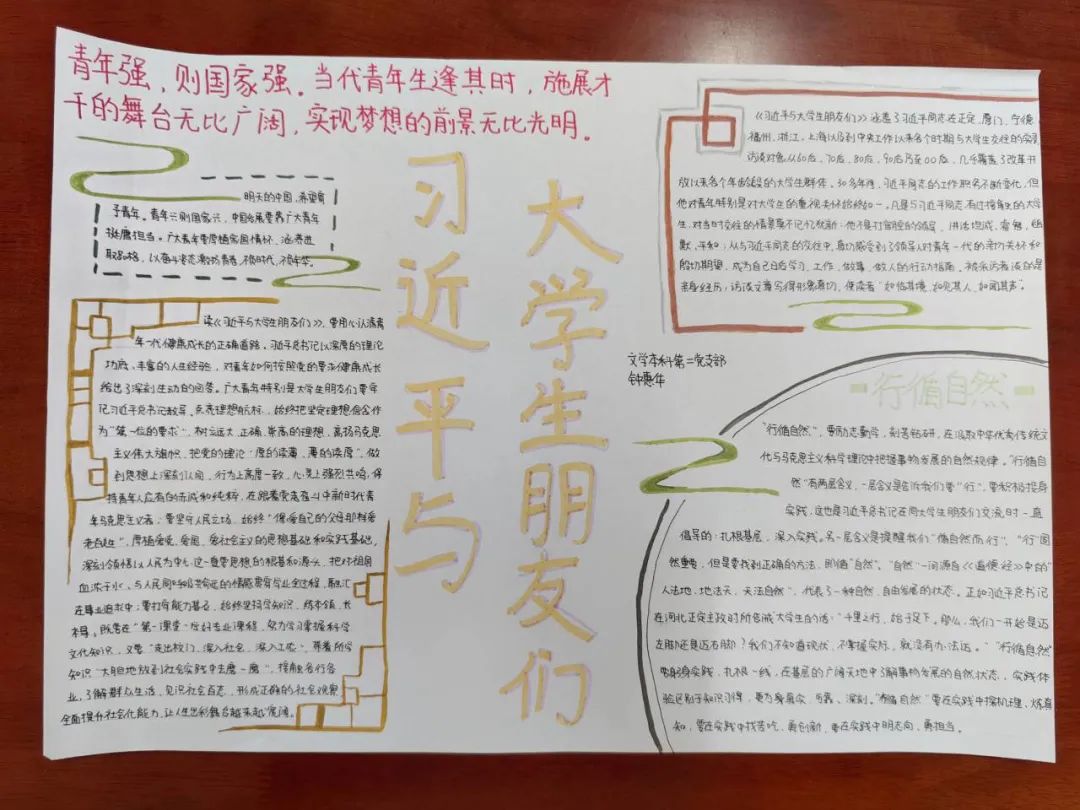 青年强，则国家强。当代青年生逢其时，施展才
干的舞台无比广阔，实现梦想的前景无比光明。
习近平与
大学生朋友们
明天的中国，希望寄
予青年。青年兴则国家兴，中国发展要靠广大青年
挺膺担当。广大青年要厚植家国情怀、涵养进
取品格，以奋斗姿态激扬青春，不负时代，不负华年。
读《习近平与大学生朋友们》，要用心认清青
年一代健康成长的正确道路，习近平总书记以深厚的理论
功底、丰富的人生经验，对青年如何按照党的要求健康成长
给出了深刻生动的回答。广大青年特别是大学生朋友们要牢
记习近平总书记教导，点亮理想航标，始终把坚定理想信念作
为“第一位的要求”，树立远大、正确、崇高的理想，高扬马克思
主义伟大旗帜，把党的理论“厚的读薄，薄的读厚”，做
到思想上深刻认同、行为上高度一致、心灵上强烈共鸣，保
持青年人应有的赤诚和纯粹，在跟着党走奋斗中做时代青
年马克思主义者；要坚守人民立场，始终“像爱自己的父母那样爱
老百姓”，厚植爱党、爱国、爱社会主义的思想基础和实践基础，
深刻领悟以人民为中心这一重要思想的根基和源头，把对祖国
血浓于水、与人民同呼吸共命运的情感贯穿学业全过程，融汇
在事业追求中；要打牢能力基石，始终坚持学知识、练本领、长
本事。既要在“第一课堂”学好专业课程，努力学习掌握科学
文化知识，又要“走出校门，深入社会，深入工农”，带着所学
知识“大胆地放到社会实践中去磨一磨”，接触各行各
业，了解群众生活，见识社会百态，形成正确的社会观察
全面提升社会化能力，让人生出彩舞台越来越宽阔。
《习近平与大学生朋友们》涵盖了习近平同志在正定、厦门、宁德
福州、浙江、上海以及到中央工作以来各个时期与大学生交往的实录
访谈对象从60后、70后、80后、90后乃至00后，几乎覆盖了改革开
放以来各个年龄段的大学生群体。30多年间，习近平同志的工作职务不断变化，但
他对青年特别是对大学生的重视关怀始终如一。凡是与习近平同志有过接触的大学
生，对当时交往的情景莫不记忆犹新：他不是打官腔的领导，讲话坦诚、睿智、幽
默、平和；从与习近平同志的交往中，真切感受到了领导人对青年一代的亲切关怀和
殷切期望，成为自己日后学习、工作、做事、做人的行动指南。被采访者谈的是
亲身经历；访谈文章写得形象真切，使读者“如临其境、如见其人、如闻其声”。
文学本科第二党支部
钟惠华
行循自然
“行循自然”，要励志勤学、刻苦钻研，在汲取中华优秀传统文
化与马克思主义科学理论中把握事物发展的自然规律。“行循自
然”有两层含义，一层含义是告诉我们要“行”，要积极投身
实践，这也是习近平总书记在同大学生朋友们交流时一直
倡导的：扎根基层，深入实践。另一层含义是提醒我们“循自然而行”，“行”固
然重要，但是要找到正确的方法，即循“自然”。“自然”一词源自《道德经》中的“
人法地，地法天，天法道，道法自然”，代表了一种自然、自由发展的状态。正如习近平总书记
在河北正定主政时所告诫大学生的话：“千里之行，始于足下。那么，我们一开始是迈
左脚还是迈右脚？我们不知道现状，不掌握实际，就没有办法迈。”“行循自然”
要躬身实践、扎根一线，在基层的广阔天地中了解事物发展的自然状态，实践体
验区别于知识习得，更为身真实、可靠、深刻。“行循自然”要在实践中探机理，炼真
知；要在实践中找苦吃，勇创新，要在实践中明志向，勇担当。